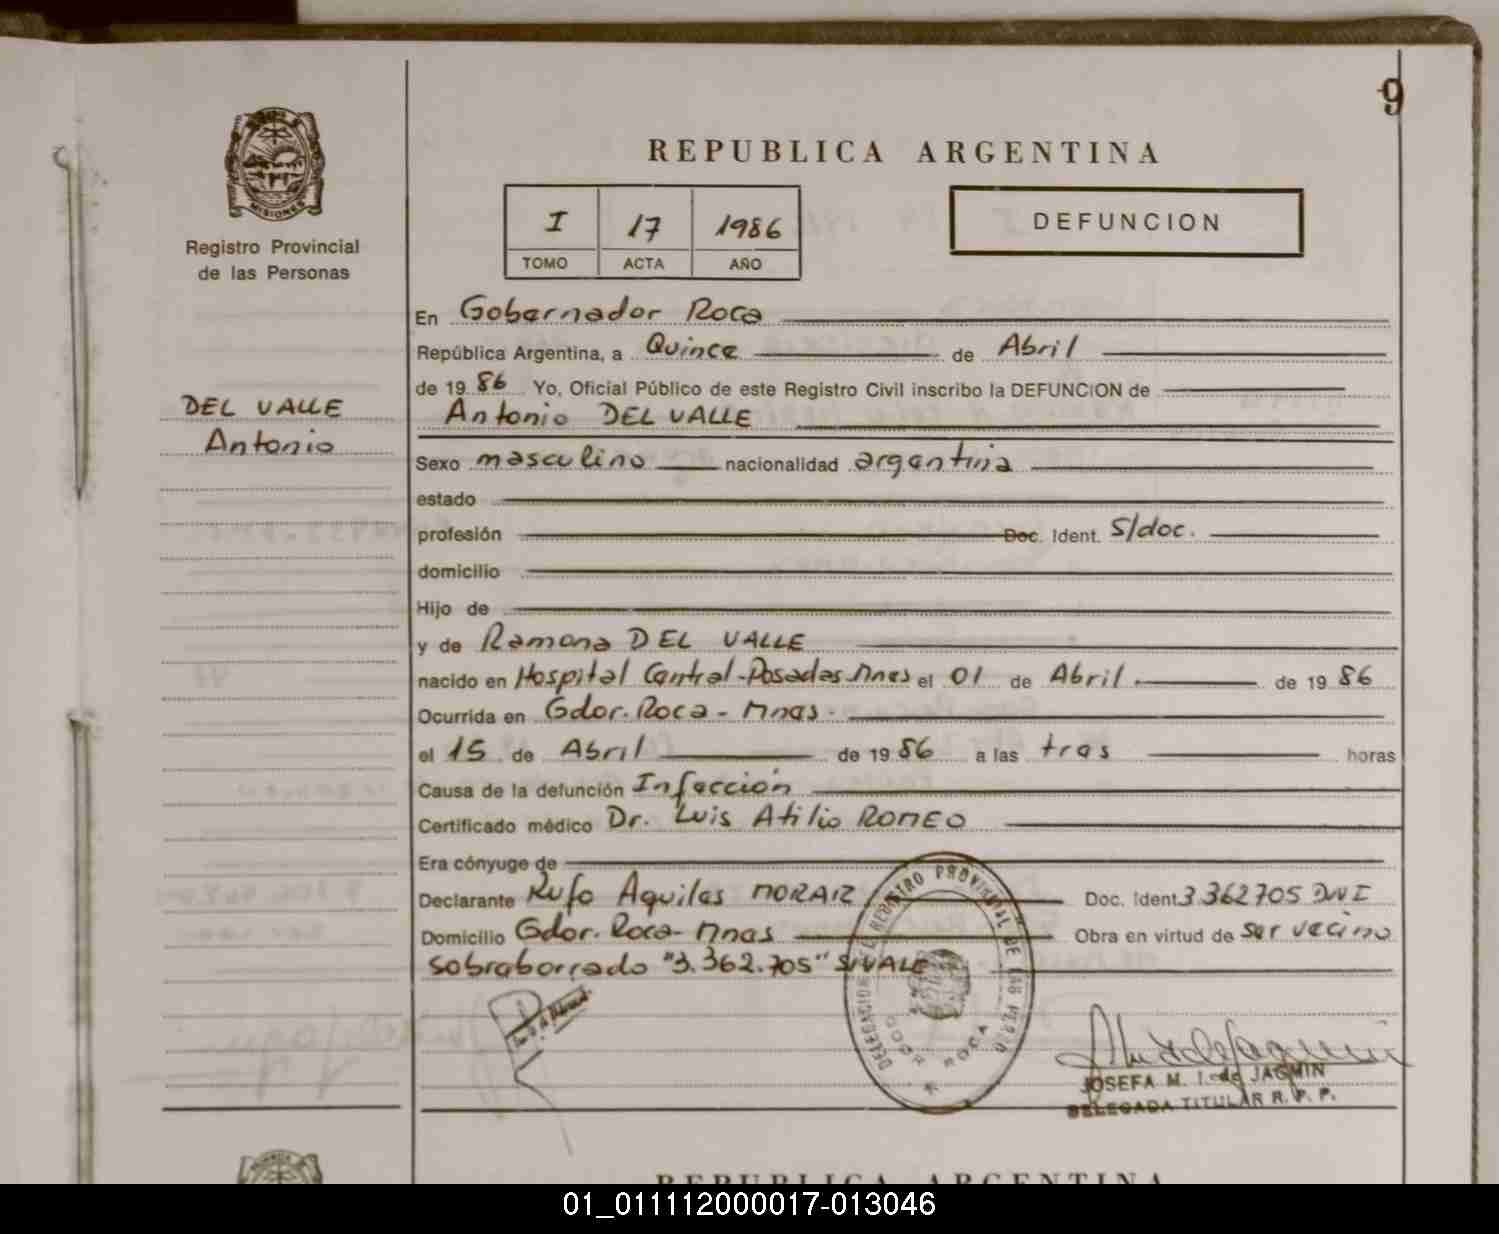 9
MISIONES
Registro Provincial
de las Personas
REPUBLICA ARGENTINA
I 17 1986
TOMO ACTA AÑO
DEFUNCION
DEL VALLE
Antonio
En Gobernador Roca
República Argentina, a Quince de Abril
de 19 86 Yo, Oficial Público de este Registro Civil inscribo la DEFUNCION de
Antonio DEL VALLE
Sexo masculino nacionalidad argentina
estado
profesión Doc. Ident. S/doc.
domicilio
Hijo de
y de Ramona DEL VALLE
nacido en Hospital Central-Posadas Mnes el 01 de Abril de 19 86
Ocurrida en Gdor. Roca - Mnes.
el 15 de Abril de 19 86 a las tres horas
Causa de la defunción Infección
Certificado médico Dr. Luis Atilio ROMEO
Era cónyuge de
Declarante Rufo Aquiles MORAIZ Doc. Ident 3.362705 DNI
Domicilio Gdor. Roca- Mnes Obra en virtud de ser vecino
sobreborrado "3.362.705" S/VALE
DELEGACION DEL REGISTRO PROVINCIAL DE LAS PERSO
GDOR. ROCA
JOSEFA M. I. de JAGMIN
DELEGADA TITULAR R. P. P.
REPUBLICA ARGENTINA
01_011112000017-013046